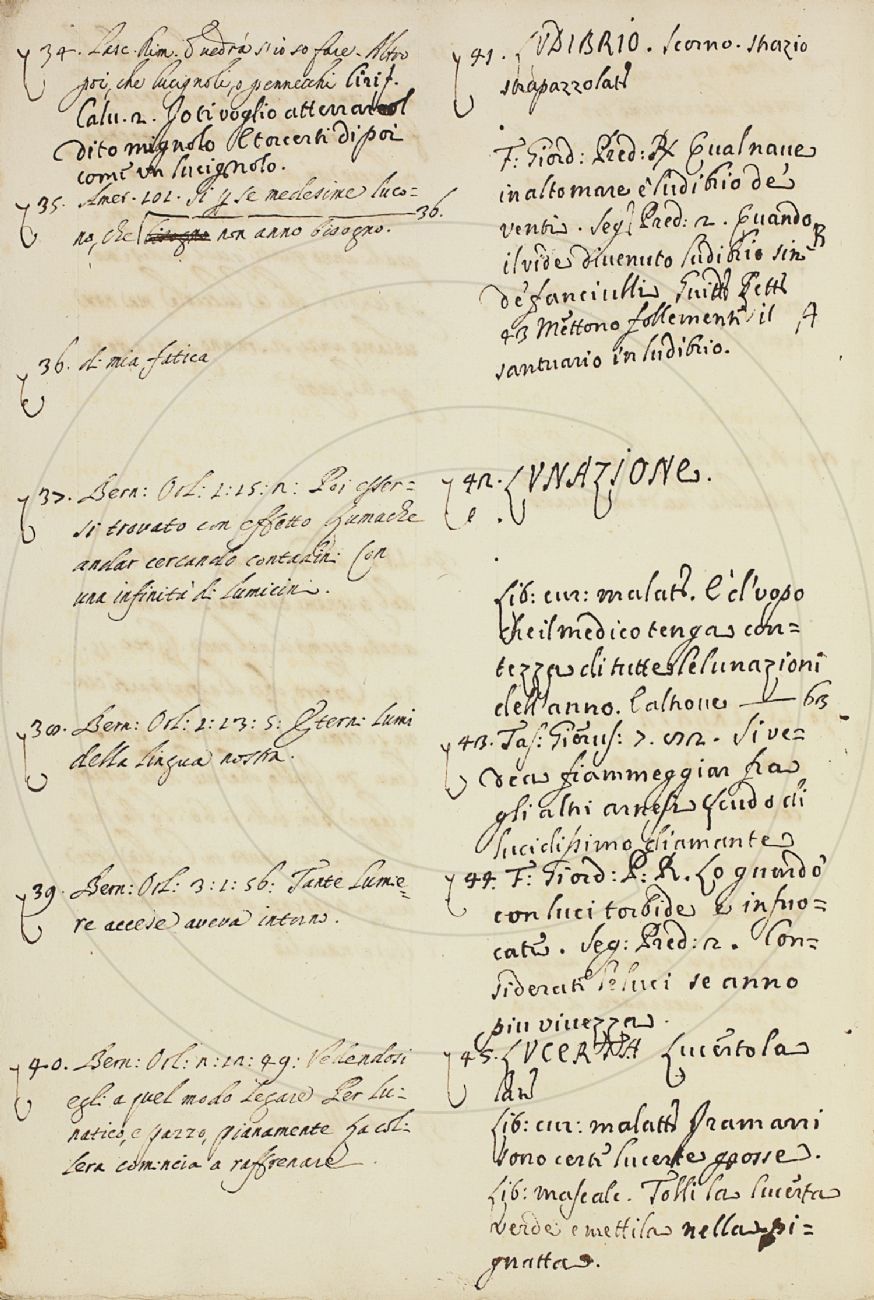 34. Lasc. Rim. Vedrà s'io so fare. Altro
poi, che lucignoli, o pennecchi Cirif.
Calu. 2. Io ti voglio atterrar col
dito mignolo E torcerti di poi
come vn lucignolo.
35. Amet. 101. Si p se medesime luco=
no, che non anno bisogno. 36.
36. di mia fatica
37. Bern: Orl: 1:15:12: Poi esser=
si trovato con effetto Lumache
andar cercando contadini Con
una infinità di Lumicini.
38. Bern: Orl: 1:23:5: Eterni lumi
della lingua nostra.
39. Bern: Orl: 3:1:56: Tante Lumie=
re accese aveva intorno.
40. Bern: Orl: 12:49: Vedendosi
egli a quel modo legare Per lu=
natico, e pazzo, pianamente La col=
lera comincia a raffrenare.
41. LVDIBRIO. Scorno. strazio
strapazzolat
F: Giord: Pred: R Qual naue
in alto mare è ludibrio de'
venti. Seg Pred: 2. Quando
il vide diuenuto ludibrio sin B
de' fanciulli Guitt Lett
43 Mettono follemente il A
santuario in ludibrio.
42. LVNAZIONE.
e.
Lib: cur: malatt. E' d'uopo
che il medico tenga con=
tezza di tutte le lunazioni
dell'anno. E altroue — 63
43. Tas: Gierus: 7. 82. Si ve=
dea fiammeggiar fra
gli altri arnesi Scudo di
lucidissimo diamante
44. F: Giord: P: R. Lo guardò
con luci torbide e infuo=
cate. Seg: Pred: 2. Con=
siderate le luci se anno
piu viuezza.
45. LVCERTA Lucertola
lat
Lib: cur: malatt I ramarri
sono certe lucerte grosse.
Lib: mascalc. Tolli la lucerta
verde e mettila nella pi=
gnatta.